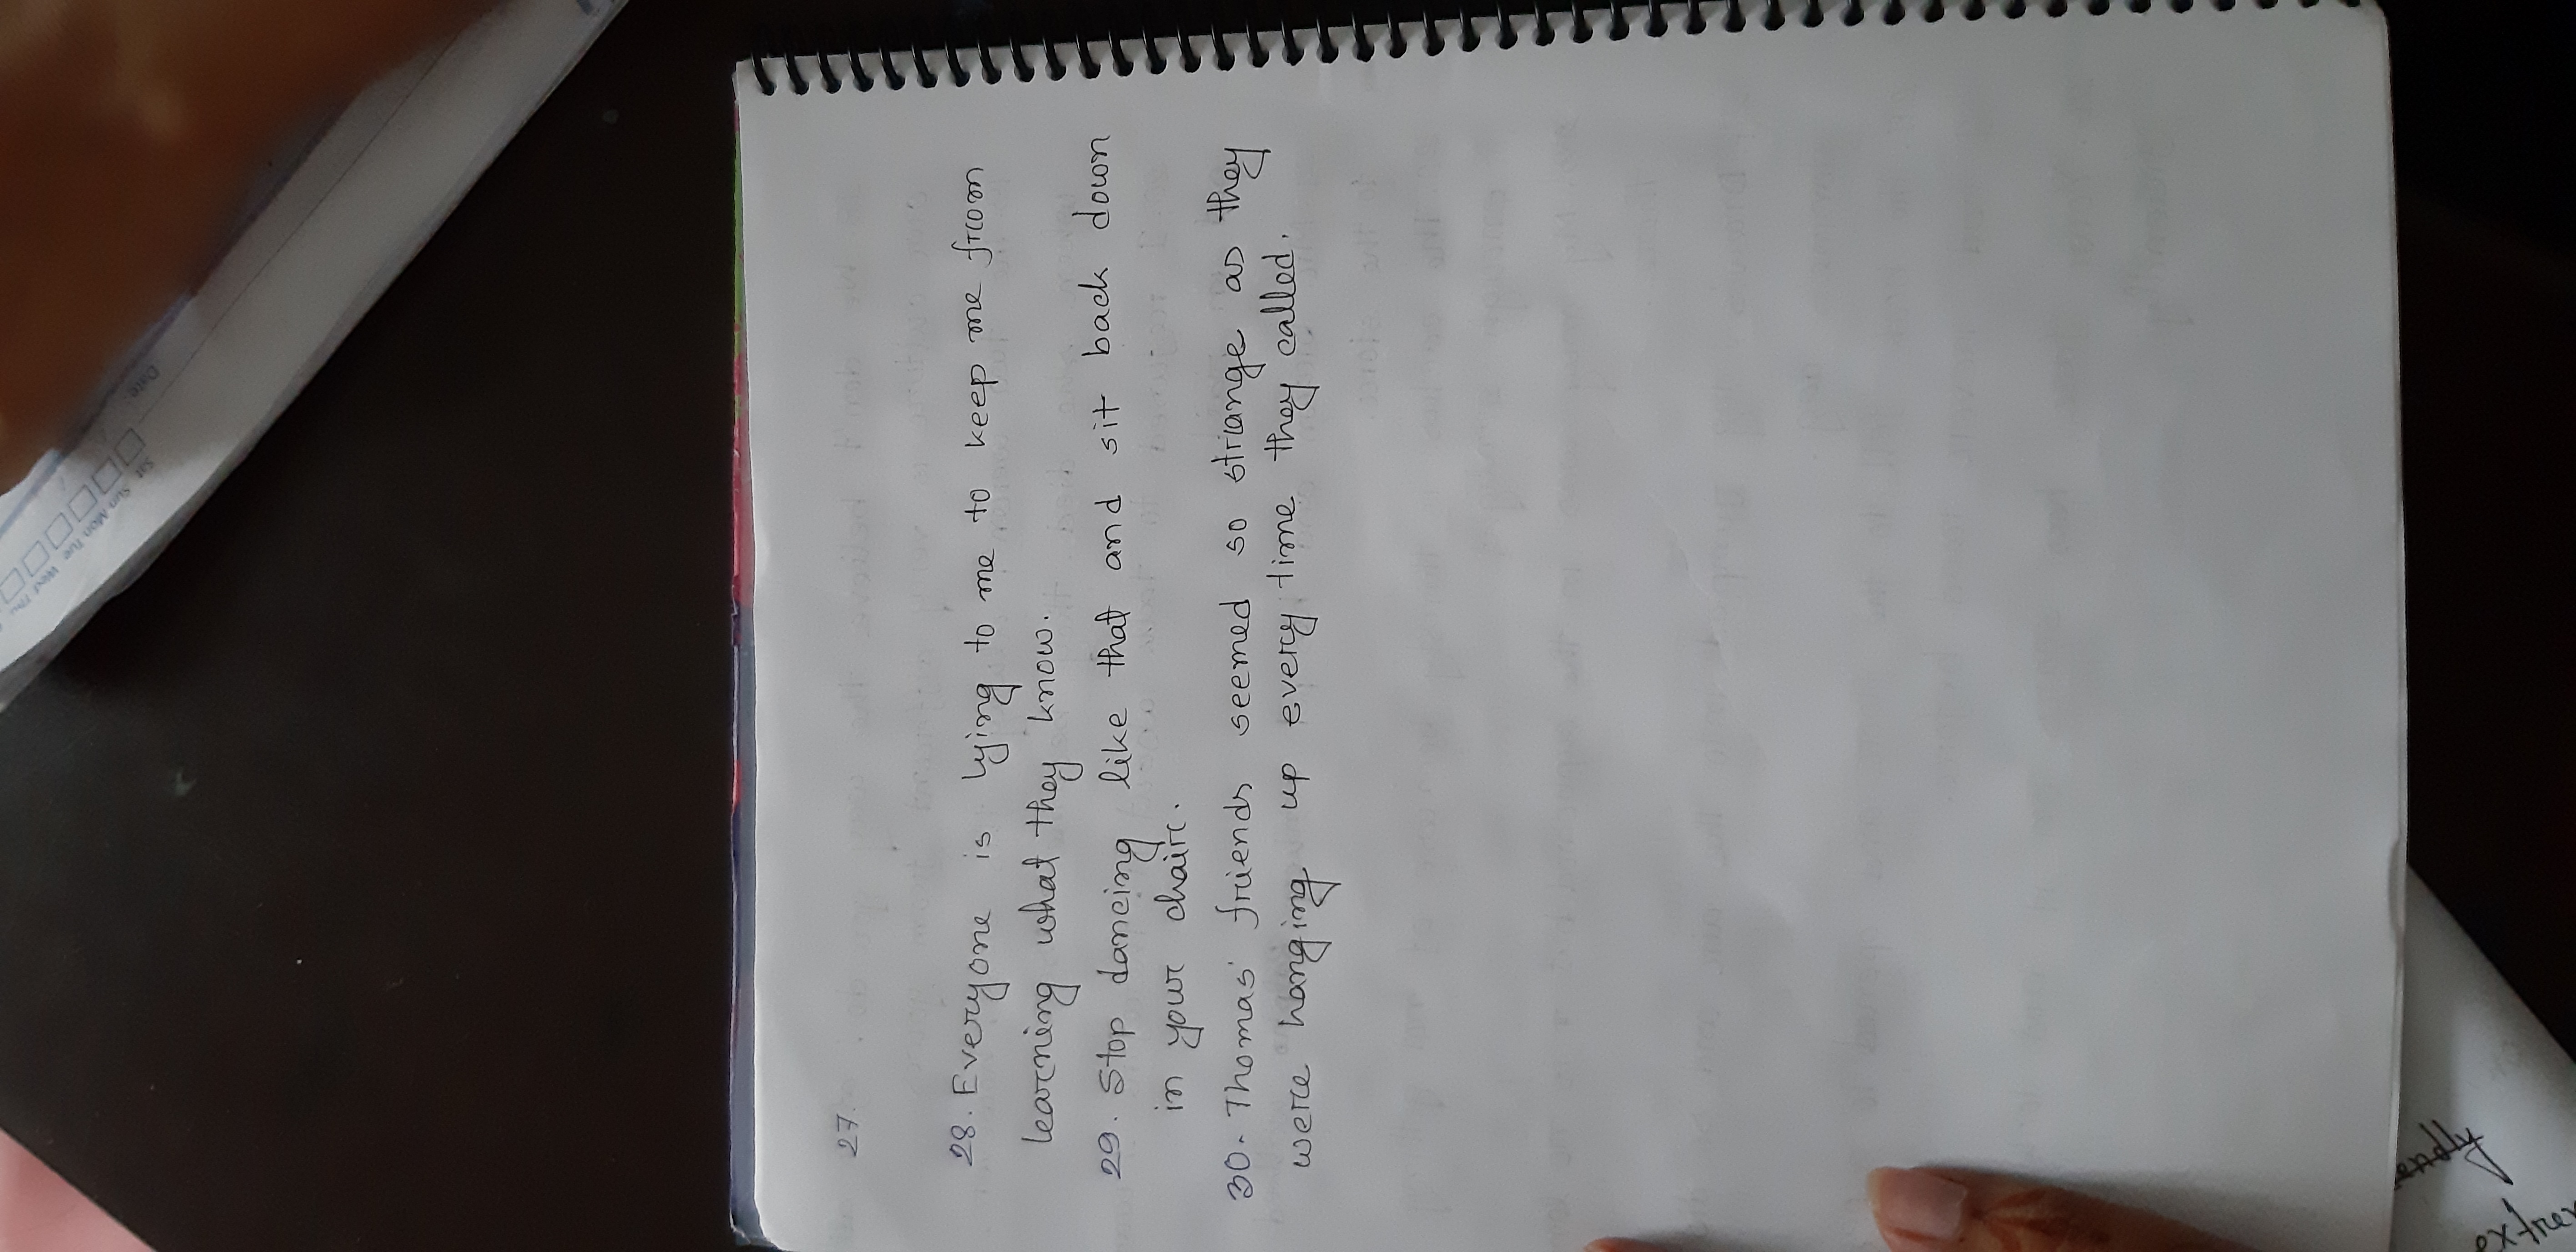 Date:
Sat Sun Mon Tue Wed Thu
27.
28. Everyone is lying to me to keep me from
learning what they know.
29. Stop dancing like that and sit back down
in your chair.
30. Thomas' friends seemed so strange as they
were hanging up every time they called.